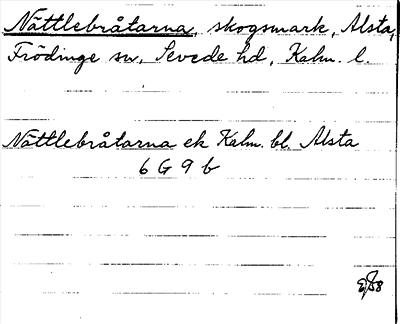 Nättlebråtarna, skogsmark, Alsta,
Frödinge sn, Sevede hd, Kalm. l.
Nättlebråtarna ek Kalm. bl. Alsta
6 G 9 b